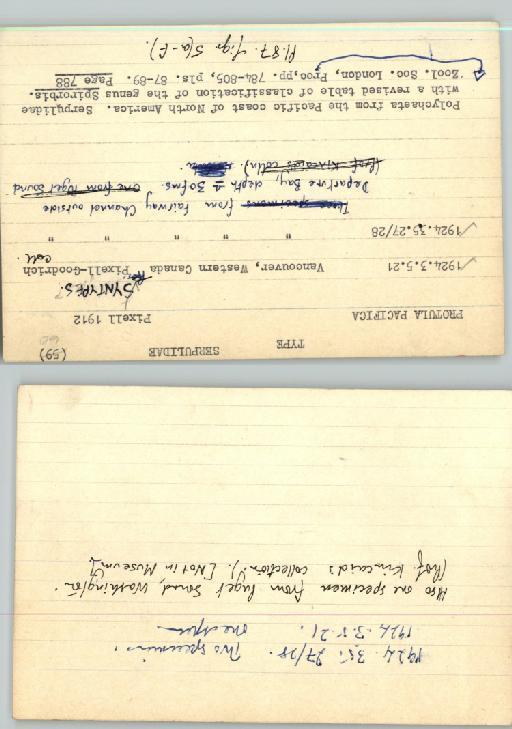 TYPE SERPULIDAE (59)
60
PROTULA PACIFICA Pixell 1912
SYNTYPES.
1924.3.5.21 Vancouver, Western Canada Pixell-Goodrich
coll.
1924.3.5.27/28 " " " "
Three specimens from Fairway Channel outside
Departure Bay, depth ± 30 fms. One from Puget Sound
(Prof. Kincaid's colltn).
Polychaeta from the Pacific coast of North America. Serpulidae
with a revised table of classification of the genus Spirorbis.
Zool. Soc. London, Proc, pp. 784-805, pls. 87-89. Page 788
Pl. 87. figs 5(a-f).
1924.3.5.27/28. Two specimens.
1924.3.5.21. One spec
Also one specimen from Puget Sound, Washington.
(Prof. Kincaid's collection). [Not in Museum]